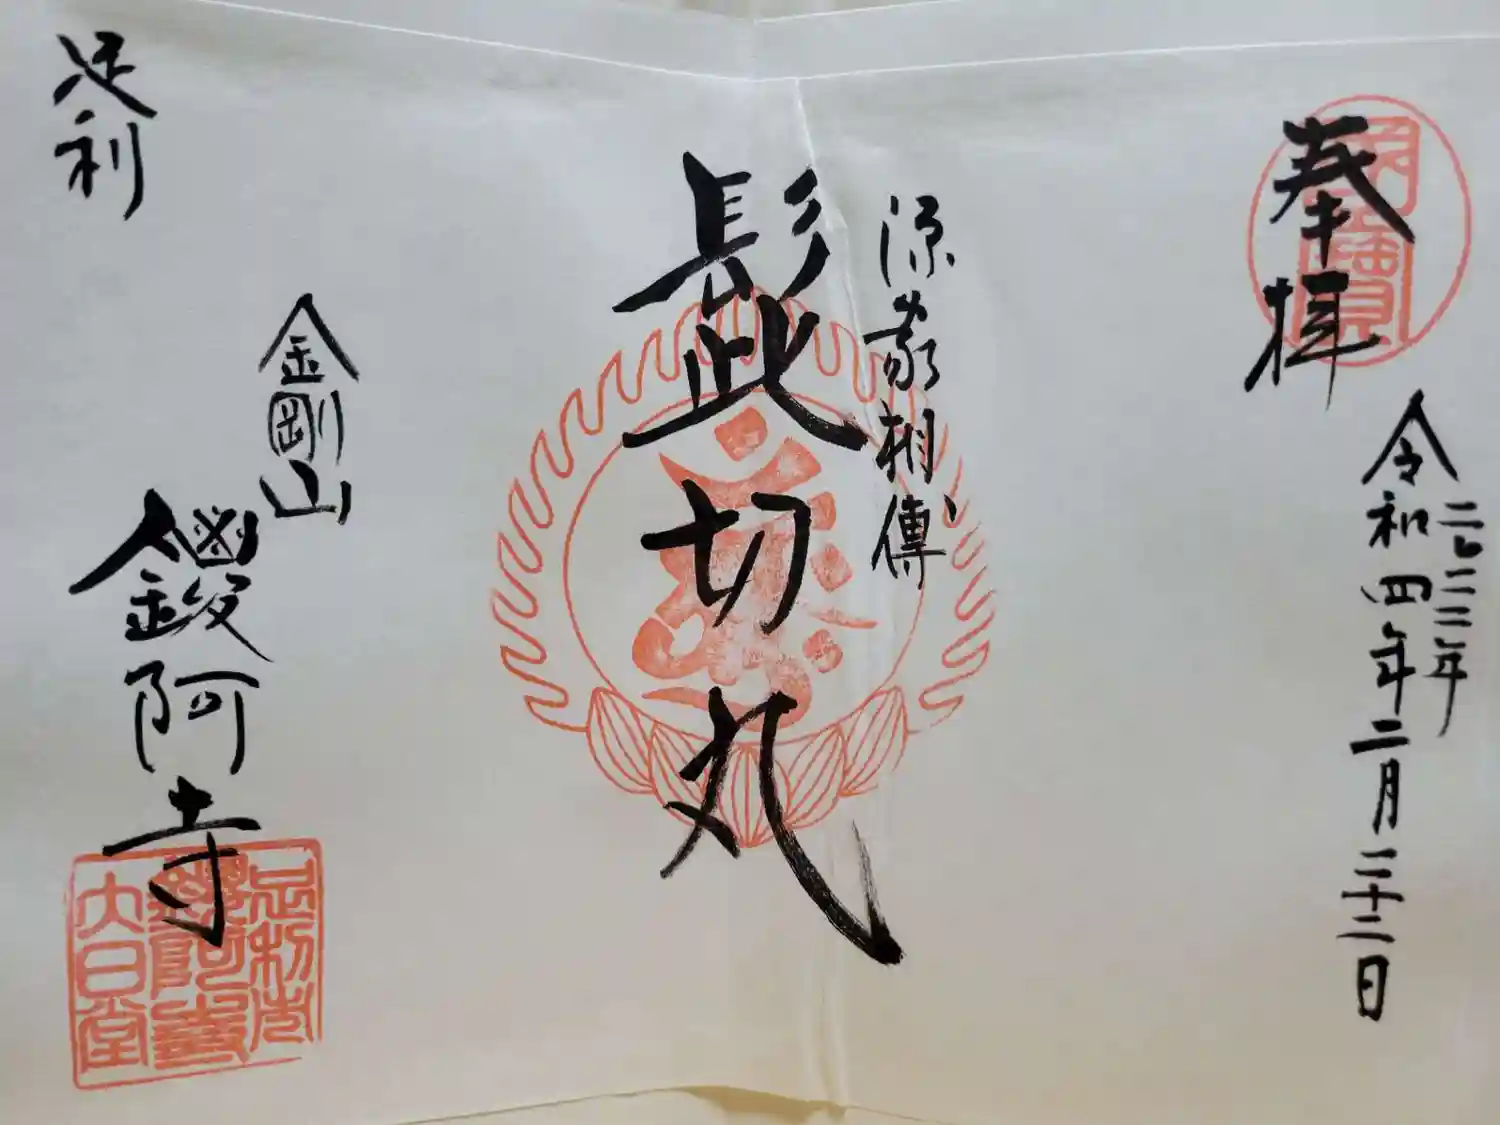 奉拝
二〇二二年
令和四年二月二十二日
源家相傳
髭切丸
足利
金剛山
鑁阿寺
足利市
鑁阿寺
大日堂